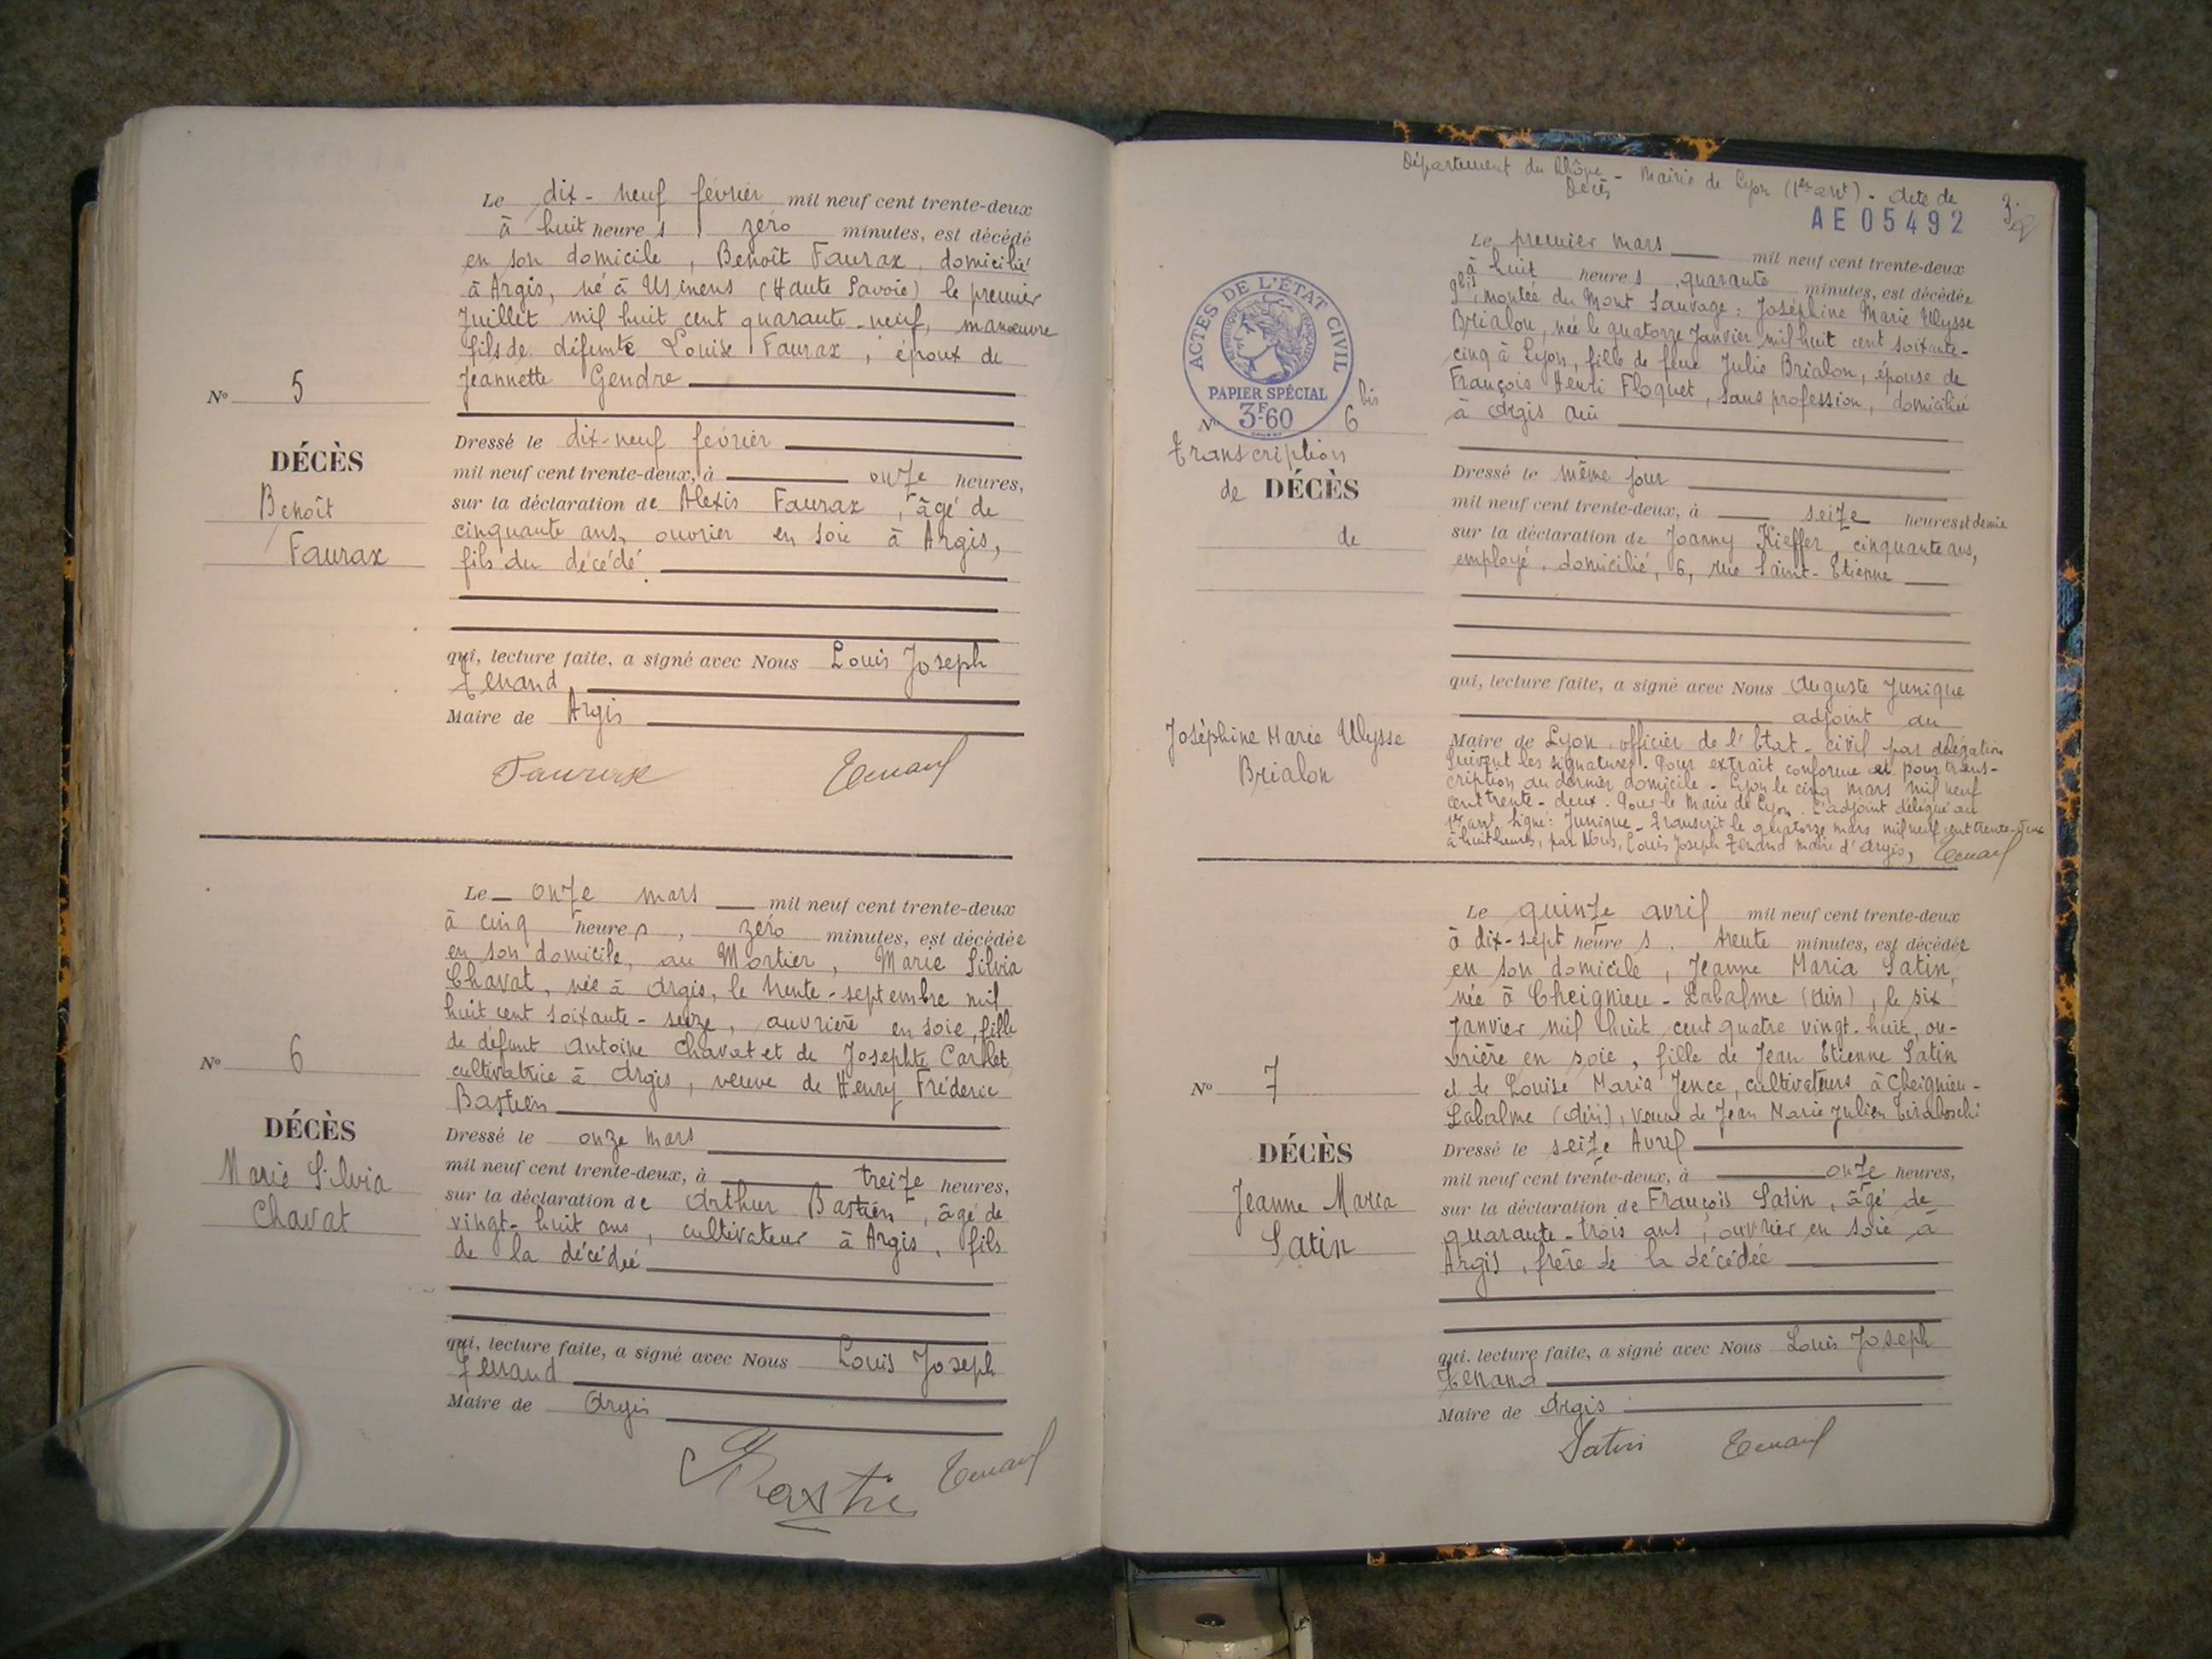 Le dix-neuf février mil neuf cent trente-deux
à huit heures, zéro minutes, est décédé
en son domicile, Benoît Faurax, domicilié
à Argis, né à Usinens (Haute Savoie) le premier
Juillet mil huit cent quarante-neuf, manœuvre
fils de défunte Louise Faurax, époux de
Jeannette Gendre
No 5
DÉCÈS
Benoît
Faurax
Dressé le dix-neuf février
mil neuf cent trente-deux, à onze heures,
sur la déclaration de Alexis Faurax, âgé de
cinquante ans, ouvrier en soie à Argis,
fils du décédé
qui, lecture faite, a signé avec Nous Louis Joseph
Tenand
Maire de Argis
Faurax Tenand
Le onze mars mil neuf cent trente-deux
à cinq heures, zéro minutes, est décédée
en son domicile, au Mortier, Marie Silvia
Chavat, née à Argis, le trente-septembre mil
huit cent soixante-seize, ouvrière en soie, fille
de défunt Antoine Chavat et de Josephte Carlet
cultivatrice à Argis, veuve de Henry Fréderic
Bastien
No 6
DÉCÈS
Marie Silvia
Chavat
Dressé le onze mars
mil neuf cent trente-deux, à treize heures,
sur la déclaration de Arthur Bastien, âgé de
vingt-huit ans, cultivateur à Argis, fils
de la décédée
qui, lecture faite, a signé avec Nous Louis Joseph
Tenand
Maire de Argis
Bastien Tenand
Département du Rhône - Mairie de Lyon (1er arrt) - Acte de
Décès
AE05492
3
Le premier mars mil neuf cent trente-deux
à huit heures quarante minutes, est décédée
9bis, montée du Mont Sauvage: Joséphine Marie Ulysse
Brialon, née le quatorze Janvier mil huit cent soixante-
cinq à Lyon, fille de feue Julie Brialon, épouse de
François Henri Floquet, sans profession, domiciliée
à Argis Ain
ACTES DE L'ÉTAT CIVIL
RÉPUBLIQUE FRANÇAISE
PAPIER SPÉCIAL
3F60
No 6 bis
Transcription
de DÉCÈS
de
Joséphine Marie Ulysse
Brialon
Dressé le même jour
mil neuf cent trente-deux, à seize heures et demie
sur la déclaration de Joanny Kieffer, cinquante ans,
employé, domicilié, 6, rue Saint-Etienne
qui, lecture faite, a signé avec Nous Auguste Junique
adjoint au
Maire de Lyon officier de l'Etat-civil par délégation
Suivent les signatures. Pour extrait conforme et pour trans-
cription au dernier domicile - Lyon le cinq mars mil neuf
cent trente-deux. Pour le Maire de Lyon. L'adjoint délégué au
1er arrt signé: Junique - Transcrit le quatorze mars mil neuf cent trente-deux
à huit heures, par Nous, Louis Joseph Tenand maire d'Argis, Tenand
Le quinze avril mil neuf cent trente-deux
à dix-sept heures. trente minutes, est décédée
en son domicile, Jeanne Maria Satin,
née à Cheignieu-Labalme (Ain), le six
Janvier mil huit cent quatre vingt-huit, ou-
vrière en soie, fille de Jean Etienne Satin
et de Louise Maria Jence, cultivateurs à Cheignieu-
Labalme (Ain), veuve de Jean Marie Julien Tiraboschi
No 7
DÉCÈS
Jeanne Maria
Satin
Dressé le seize Avril
mil neuf cent trente-deux, à onze heures,
sur la déclaration de François Satin, âgé de
quarante-trois ans, ouvrier en soie à
Argis, frère de la décédée
qui, lecture faite, a signé avec Nous Louis Joseph
Tenand
Maire de Argis
Satin Tenand